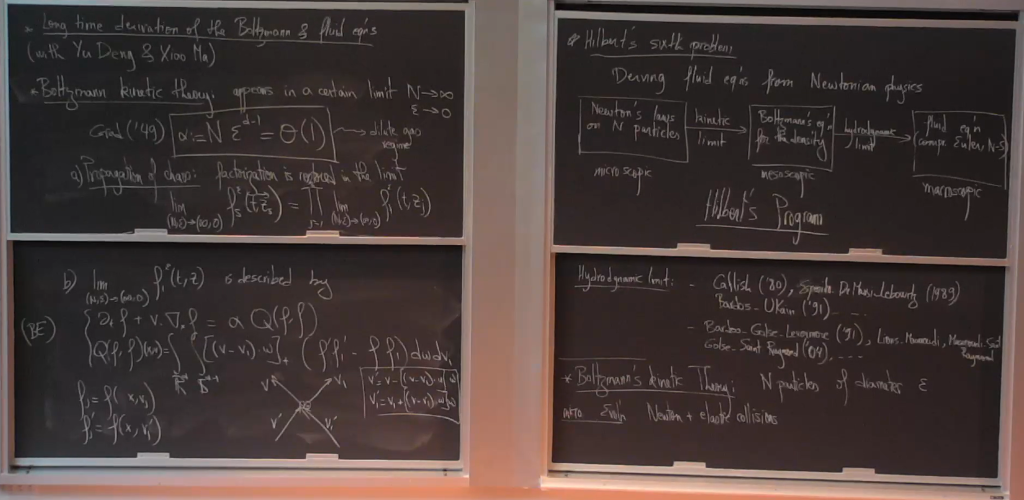 * Long time derivation of the Boltzmann & fluid eq'ns
(with Yu Deng & Xiao Ma)
* Boltzmann kinetic theory: appears in a certain limit N→∞
ε→0
Grad ('49) α := N ε^{d-1} = Θ(1) → dilute gas
regime
a) Propagation of chaos: factorization is in the limit
lim_{(N,ε)→(∞,0)} f_s^ε(t, z_s) = ∏_{j=1}^s lim_{(N,ε)→(∞,0)} f_1^ε(t, z_j)
b) lim_{(N,ε)→(∞,0)} f_1^ε(t, z) is described by
(BE) { ∂_t f + v·∇_x f = α Q(f, f)
Q(f, f)(x,v) = ∫_{R^d} ∫_{S^{d-1}} [(v - v_1)·ω]_+ (f' f_1' - f f_1) dω dv_1
f_1 = f(x, v_1)
f_1' = f(x, v_1')
v v_1
v' v_1'
v' = v - ((v - v_1)·ω)ω
v_1' = v_1 + ((v - v_1)·ω)ω
* Hilbert's sixth problem:
Deriving fluid eq'ns from Newtonian physics
Newton's laws
on N particles
kinetic
limit
Boltzmann's eq'n
for the density
hydrodynamic
limit
fluid eq'n
Euler, N-S)
microscopic
mesoscopic
macroscopic
Hilbert's Program
Hydrodynamic limit: - Caflisch ('80), De Masi-Lebowitz (1989)
Bardos-Ukai ('91) ...
- Bardos-Golse-Levermore ('91), Lions-Masmoudi, Masmoudi-Saint Raymond
Golse-Saint Raymond ('04), ....
* Boltzmann's kinetic Theory: N particles of diameter ε
Evol'n Newton + elastic collisions